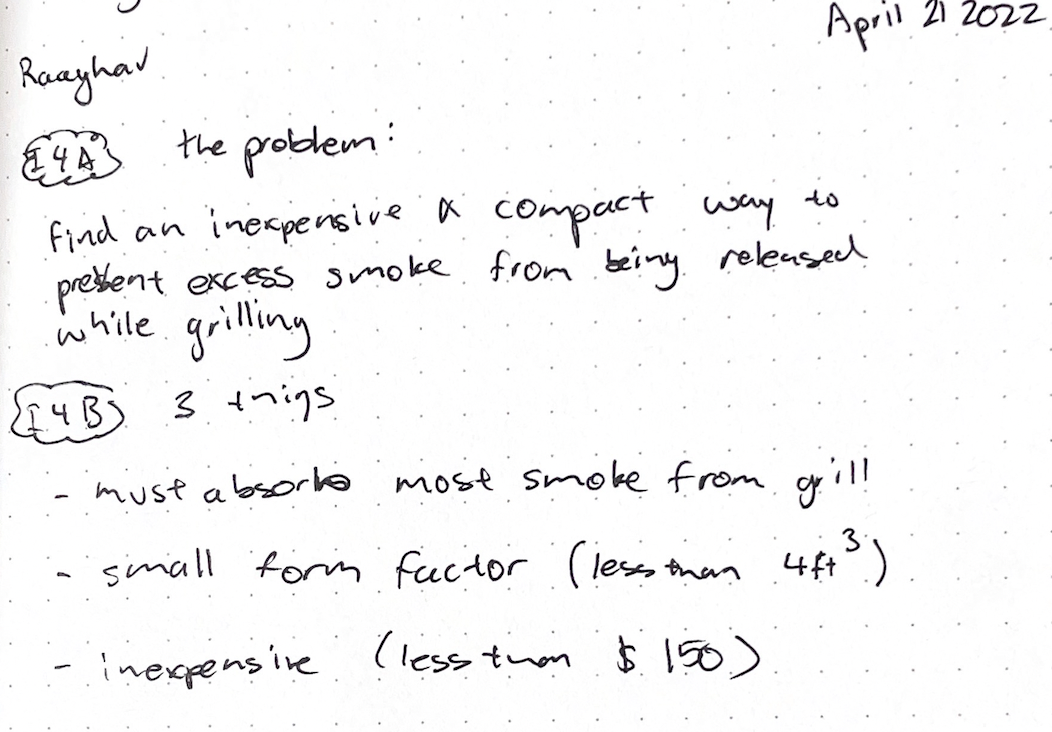 April 21 2022
Raaghav
I4A the problem:
find an inexpensive & compact way to
prevent excess smoke from being released
while grilling
I4B 3 thigs
- must absorb most smoke from grill
- small form factor (less than 4ft³)
- inexpensive (less than $150)